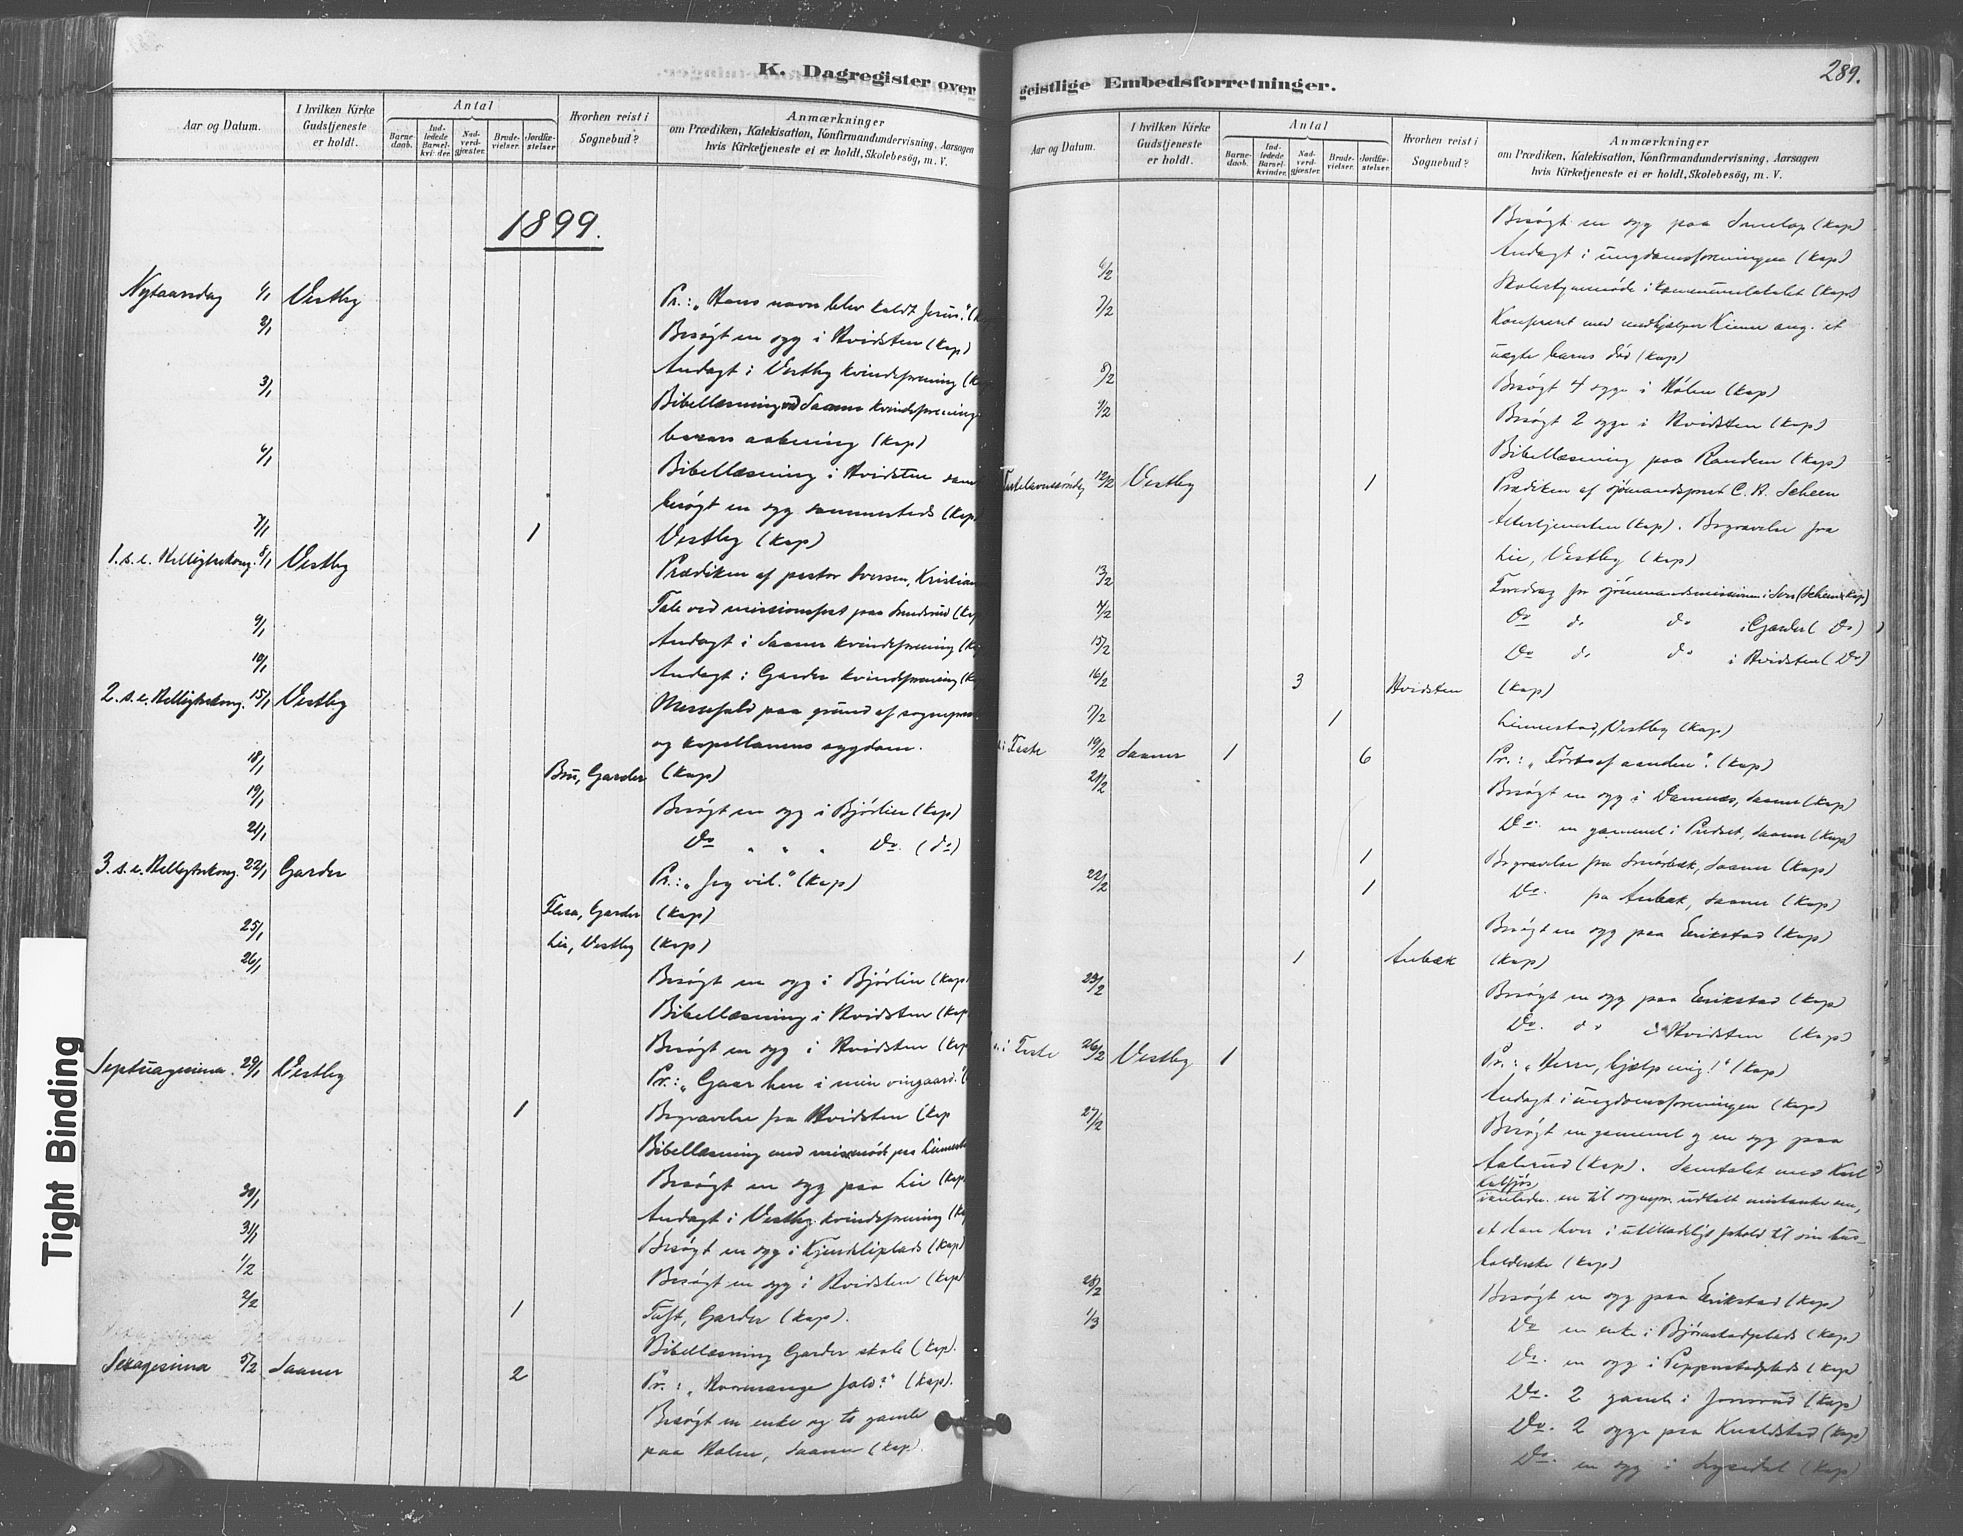 K. Dagregister over
Aar og Datum.
I hvilken Kirke Gudstjeneste er holdt.
Antal
Barnedaab.
Indledede Barselkvinder.
Nadverdgjæster.
Brudevielser.
Jordfæstelser
Hvorhen reist i Sognebud?
Anmærkninger
om Prædiken, Katekisation, Konfirmandundervisning, Aarsagen
hvis Kirketjeneste ei er holdt, Skolebesøg, m. V.
1899.
Nytaarsdag 1/1 Vestby Pr.: "Hans navn blev kaldt Jesus."
2/1 Besøgt en syg i Hvidsten (Kap)
Andagt i Vestby kvindeforening
3/1 Bibellæsning ved Saaner kvindeforenings
basars aabning (Kap)
6/1 Bibellæsning i Hvidsten samt
besøgt en syg sammesteds (Kap)
7/1 1 Vestby (Kap)
1. s. e. Helligtrekong. 8/1 Vestby Prædiken af pastor Iversen, Kristian
Tale ved missionsfest paa Smedsrud (Kap
9/1 Andagt i Saaner kvindeforening
10/1 Andagt i Garder kvindeforening
2. s. e. Helligtrekong. 15/1 Vestby Messefald paa grund af sogneprest
og kapellanens sygdom.
18/1 Bru, Garder (Kap)
19/1 Besøgt en syg i Bjørlien (Kap)
21/1 Do " " " Do. (do)
3. s. e. Helligtrekong. 22/1 Garder Pr.: "Jeg vil." (Kap)
Garder (Kap)
25/1 Lie, Vestby (Kap)
26/1 Besøgt en syg i Bjørlien (Kap)
Bibellæsning i Hvidsten (Kap
Besøgt en syg i Hvidsten (Kap
Septuagesima. 29/1 Vestby Pr.: "Gaar hen i min vingaard."
1 Begravelse fra Hvidsten (Kap
Bibellæsning med paa
Besøgt en syg paa Lie (Kap.
30/1 Andagt i Vestby kvindeforening
31/1 Besøgt en syg i (Kap)
1/2 Besøgt en syg i Hvidsten (Kap)
2/2 1 Tuft, Garder (Kap).
Bibellæsning Garder skole (Kap).
Sexagesima 5/2 Saaner 2 Pr.: "Hvormange fold?" (Kap).
Besøgt en enke og to gamle
paa Holen, Saaner (Kap).
geistlige Embedsforretninger.
289.
Aar og Datum.
I hvilken Kirke Gudstjeneste er holdt.
Antal
Barnedaab.
Indledede Barselkvinder.
Nadverdgjæster.
Brudevielser.
Jordfæstelser.
Hvorhen reist i Sognebud?
Anmærkninger
om Prædiken, Katekisation, Konfirmandundervisning, Aarsagen
hvis Kirketjeneste ei er holdt, Skolebesøg, m. V.
Besøgt en syg paa (Kap)
6/2 Andagt i ungdomsforeningen (Kap)
Skolestyremøde i kommunelokalet (Kap)
7/2 Konfereret med medhjælper ang. et
uægte barns død (Kap)
8/2 Besøgt 4 syge i Hølen (Kap)
9/2 Besøgt 2 syge i Hvidsten (Kap)
Bibellæsning paa Randem (Kap)
Fastelavnssøndag 12/2 Vestby 1 Prædiken af sjømandsprest C. A. Scheen
Altertjenesten (Kap). Begravelse fra
Lie, Vestby (Kap)
13/2 Foredrag for sjømandsmissionen i Son (Scheen & Kap)
14/2 Do do do i Garder (Do)
15/2 Do do do i Hvidsten (Do)
16/2 3 Hvidsten (Kap)
17/2 1 Linnestad, Vestby (Kap)
i Faste 19/2 Saaner 1 6 Pr.: "Førtes af aanden". (Kap)
21/2 Besøgt en syg i Saaner (Kap)
Do. en gammel i Saaner (Kap)
1 Begravelse fra Smørbæk, Saaner (Kap)
22/2 1 Do. fra Aubæk, Saaner (Kap)
Besøgt en syg paa Erikstad (Kap)
1 Aubæk (Kap)
23/2 Besøgt en syg paa Erikstad (Kap)
Do. do i Hvidsten (Kap)
i Faste 26/2 Vestby 1 Pr.: "Herre, hjælp mig!" (Kap)
Andagt i ungdomsforeningen (Kap)
27/2 Besøgt en gammel og en syg paa
(Kap). Samtalet med
en til sognepr. udtalt mistanke om,
at han lever i utilladeligt forhold til sin hus-
holderske (Kap)
28/2 Besøgt en syg paa Erikstad (Kap)
1/3 Do en enke i Bjørnstadplads (Kap)
Do. en syg i Pepperstadplads (Kap)
Do. 2 gamle i Jonsrud (Kap)
Do. 2 syge paa (Kap)
Do. en syg i (Kap)
Tight Binding